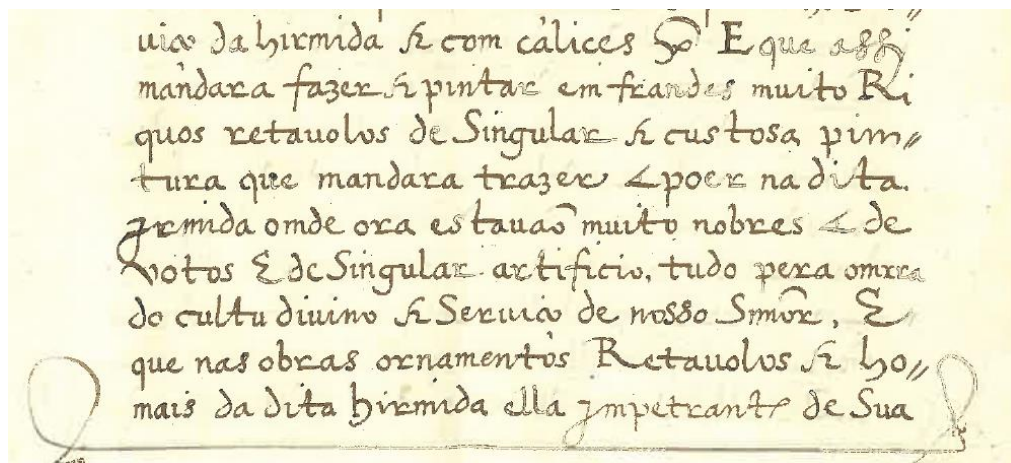 uiço da hirmida & com cálices E que assi
mandara fazer & pintar em frandes muito Ri
quos retauolos de Singular & custosa pim〃
tura que mandara trazer & poer na dita.
Irmida omde ora estauaõ muito nobres & de
votos E de Singular artificio, tudo pera omrra
do cultu diuino & Seruiço de nosso Snnõr, E
que nas obras ornamentos Retauolos & ho〃
mais da dita hirmida ella jmpetrante de Sua